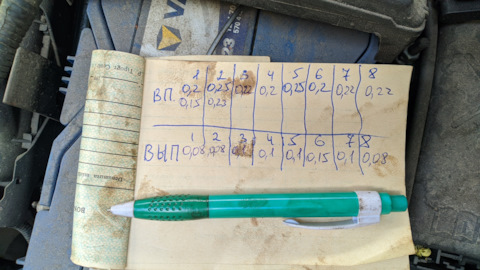 VA
1 2 3 4 5 6 7 8
ВП. 0,2 0,25 0,22 0,2 0,25 0,2 0,22 0,22
0,15 0,23
1 2 3 4 5 6 7 8
ВЫП 0,08 0,08 0,1 0,1 0,15 0,1 0,08